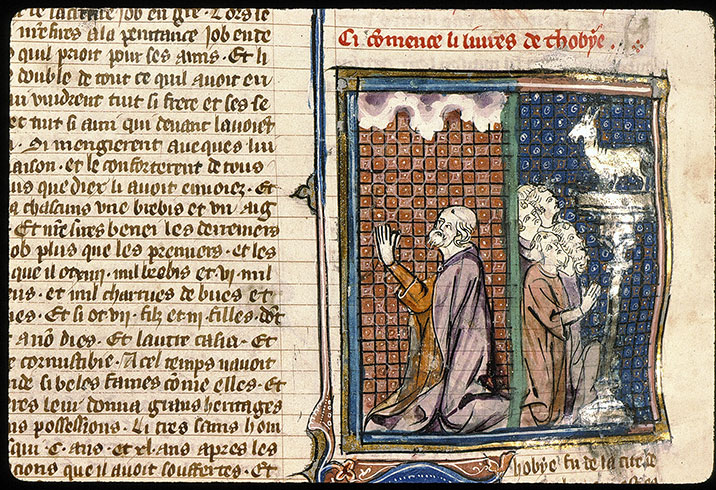 le sacrefice iob en gre. Lors le
nr̃e sires a la penitance iob en de
quil prioit pour ses amis. Et li
double de tout ce quil auoit eu
ui vindrent tuit si frere et ses se
et tuit si ami qui deuant lauoiẽt
. Si mengierent auecques lui
aison. et le conforterent de tous
us que diex li auoit enuoiez. Et
a chascuns vne brebis et vn aig
. Et nr̃e sires benei les derreniers
ob plus que les premiers. et les
que il ot xiiii. mil brebis et vi. mil
eus. et mil charrues de bues et
nes. Et si ot vii. filz et iii. filles. dõt
ot a nõ dies. Et lautre casie. Et
e cornustibie. A cel temps nauoit
nde si beles fames cõme elles. Et
res leur donna grans heritages
ns possessions. Li tres sains hom
qui C. ans. et xl. ans apres les
cions que il auoit souffertes. Et
Ci cõmence li liures de thobye.
hobye fu de la cite de